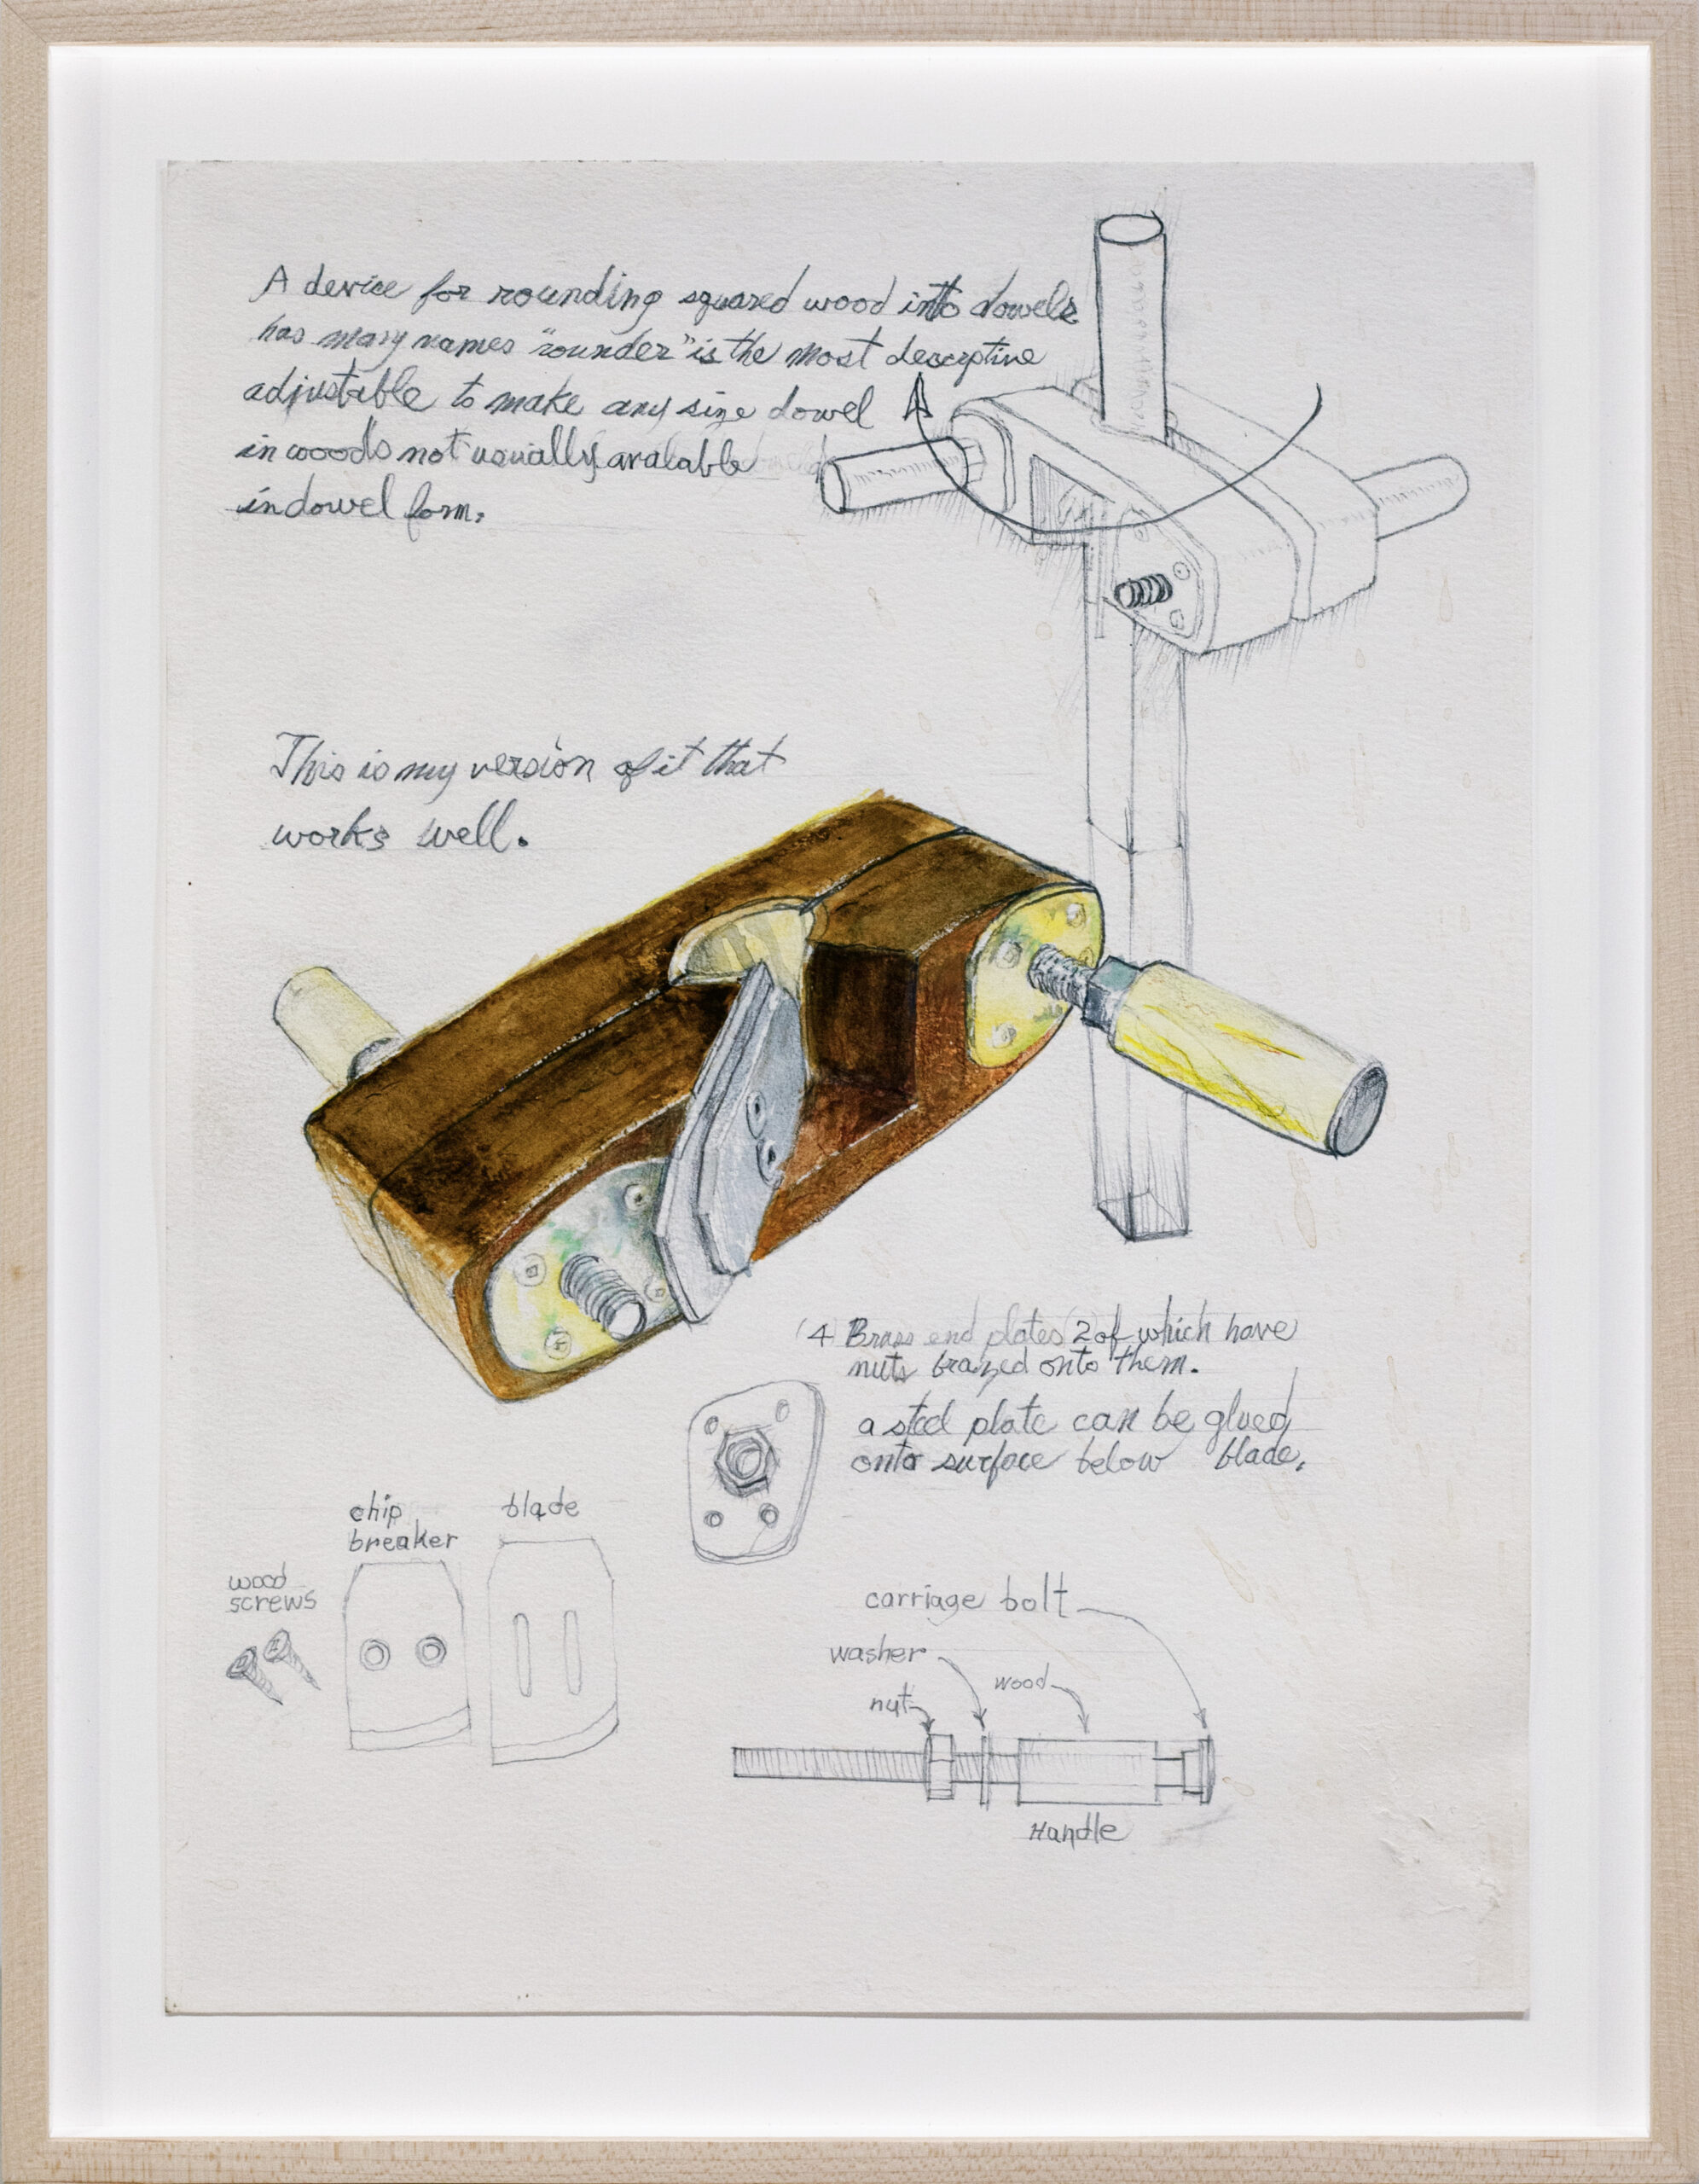 A device for rounding squared wood into dowels
has many names "rounder" is the most descriptive
adjustable to make any size dowel
in woods not usually avalable
in dowel form.
This is my version of it that
works well.
(4 Brass end plates (2 of which have
nuts brazed onto them.
a steel plate can be glued
onto surface below blade.
chip
breaker
blade
wood
screws
carriage bolt
washer
wood
nut
Handle